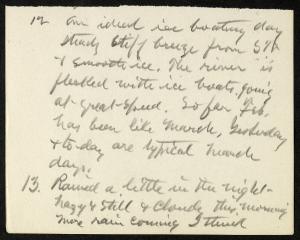 12 An ideal ice boating day
steady stiff breeze from S.W.
& smooth ice. The river is
flecked with ice boats going
at great speed. So far Feb.
has been like March, yesterday
& to-day are typical March
days.
13. Rained a little in the night -
hazy & still & cloudy this morning
more rain coming I think